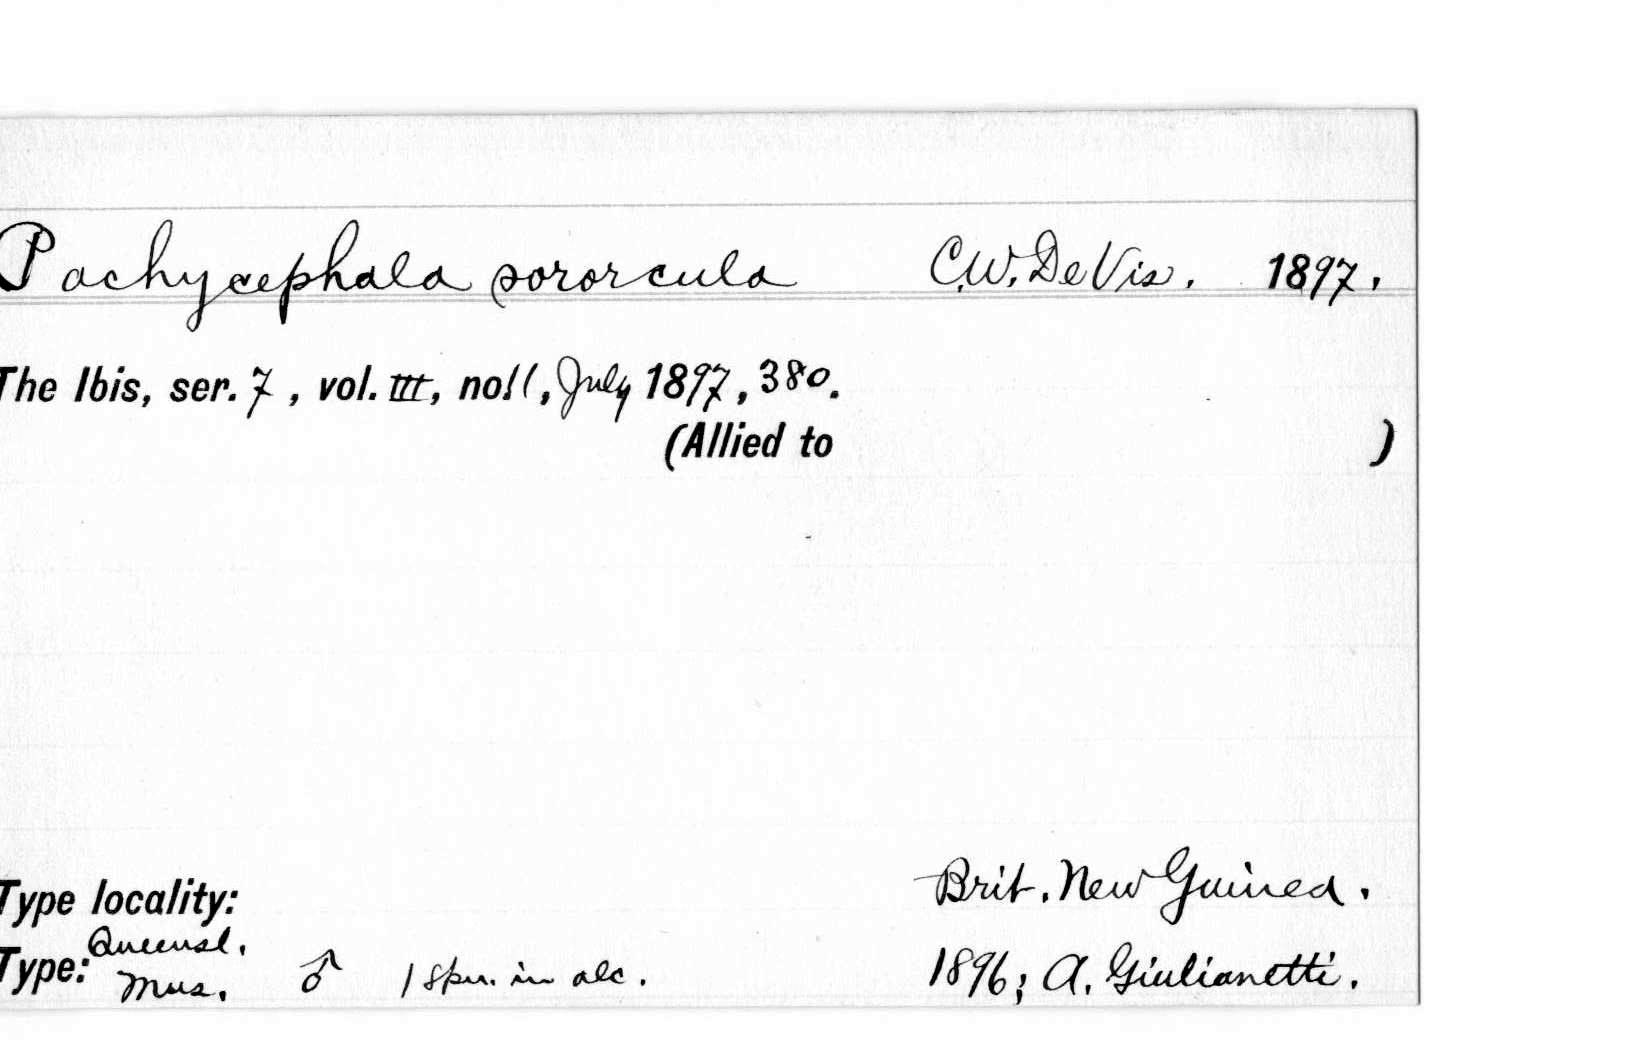 Pachycephala sororcula C.W. De Vis. 1897.
The Ibis, ser. 7, vol. III, no. 11, July 1897, 380.
(Allied to )
Type locality: Brit. New Guinea.
Type: Queensl. Mus. ♂ 1 spn. in alc. 1896; A. Giulianetti.